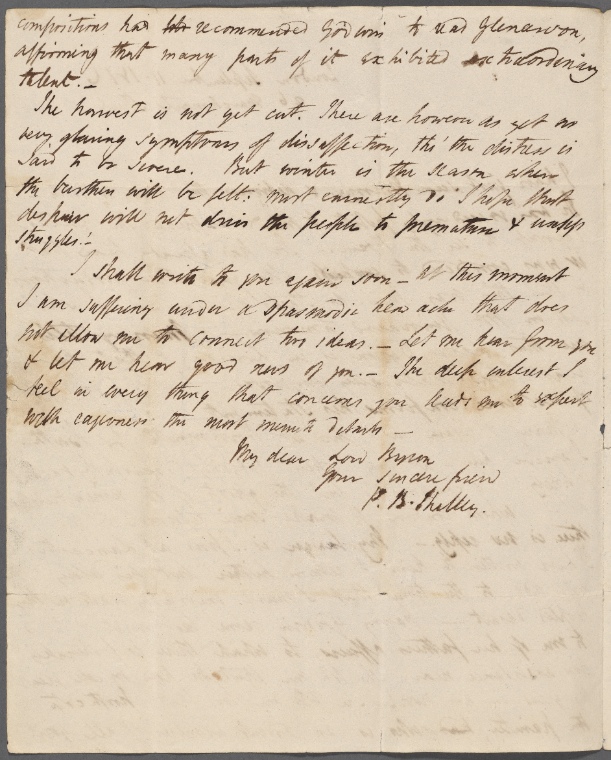 compositions had recommended Godwin to read Glenarvon,
affirming that many parts of it exhibited extraordinary
talent.—
The harvest is not yet cut. There are however as yet no
very glaring symptoms of disaffection, tho' the distress is
said to be severe. But winter is the season when
the burthen will be felt: most earnestly do I hope that
despair will not drive the people to premature & useless
struggles.—
I shall write to you again soon — at this moment
I am suffering under a spasmodic head ache that does
not allow me to connect two ideas.— Let me hear from you
& let me hear good news of you.— The deep interest I
feel in every thing that concerns you leads me to expect
with eagerness the most minute details—
My dear Lord Byron
Your sincere friend
P. B. Shelley.